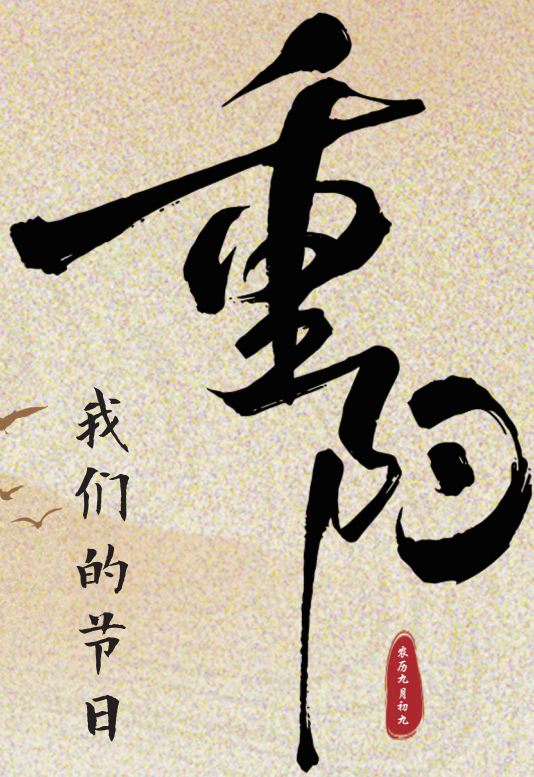 重阳
我们的节日
农历九月初九